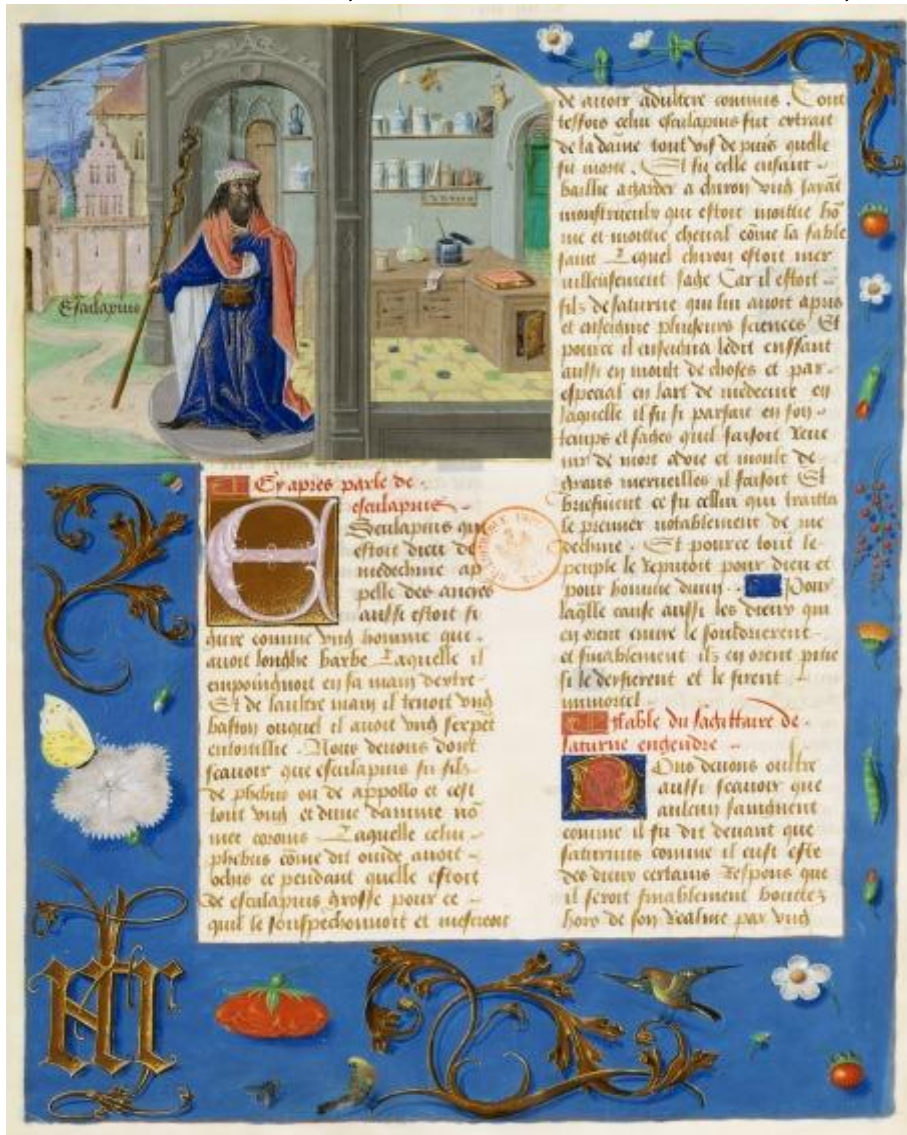 Esculapius
Cy apres parle de
esculapius
Esculapius qui
estoit dieu de
medechine ap
pelle des anciens
aussi estoit fi
gure comme vng homme qui
auoit longhe barbe Laquelle il
empoingnoit en sa main dextre
Et de laultre main il tenoit vng
baston ouquel il auoit vng serpet
entortillie Nous deuons dont
scauoir que esculapius fu filz
de phebus ou de appollo et cest
tout vng et dune damme nõ
mee coronis Laquelle celui
phebus cõme dit ouide auoit
ochis ce pendant quelle estoit
de esculapius grosse pour ce
quil le souspechonnoit et mescreoit
de auoir adultere commis. Tout
teffois celui esculapius fut extrait
de la dame tout vif depuis quelle
fu morte. Et fu celle enfant
baillie a garder a chiron vng sacãt
monstrueulx qui estoit moittie hõ
me et moittie cheual cõme la fable
faint Lequel chiron estoit mer
uilleusement sage Car il estoit
filz de saturne qui lui auoit apris
et enseigne plusieurs sciences Et
pource il enseigna ledit enffant
aussi en moult de choses et par
especial en lart de medecine en
laquelle il fu si parfait en son
temps et sages quil faisoit reue
nir de mort a vie et moult de
grans merueilles il faisoit Et
briefuent ce fu cellui qui traitta
le premier notablement de me
dechine. Et pource tout le
peuple le reputoit pour dieu et
pour homme diuin Pour
laqlle cause aussi les dieux qui
en orent enuie le fouldroierent
et finablement ilz en orent pitie
si le deifierent et le firent
immortel
La fable du sagittaire de
saturne engendre
Nous deuons oultre
aussi scauoir que
aulcuns faingnent
comme il fu dit deuant que
saturnus comme il eust este
des dieux certains respons que
il seroit finablement bouttez
hors de son realme par vng